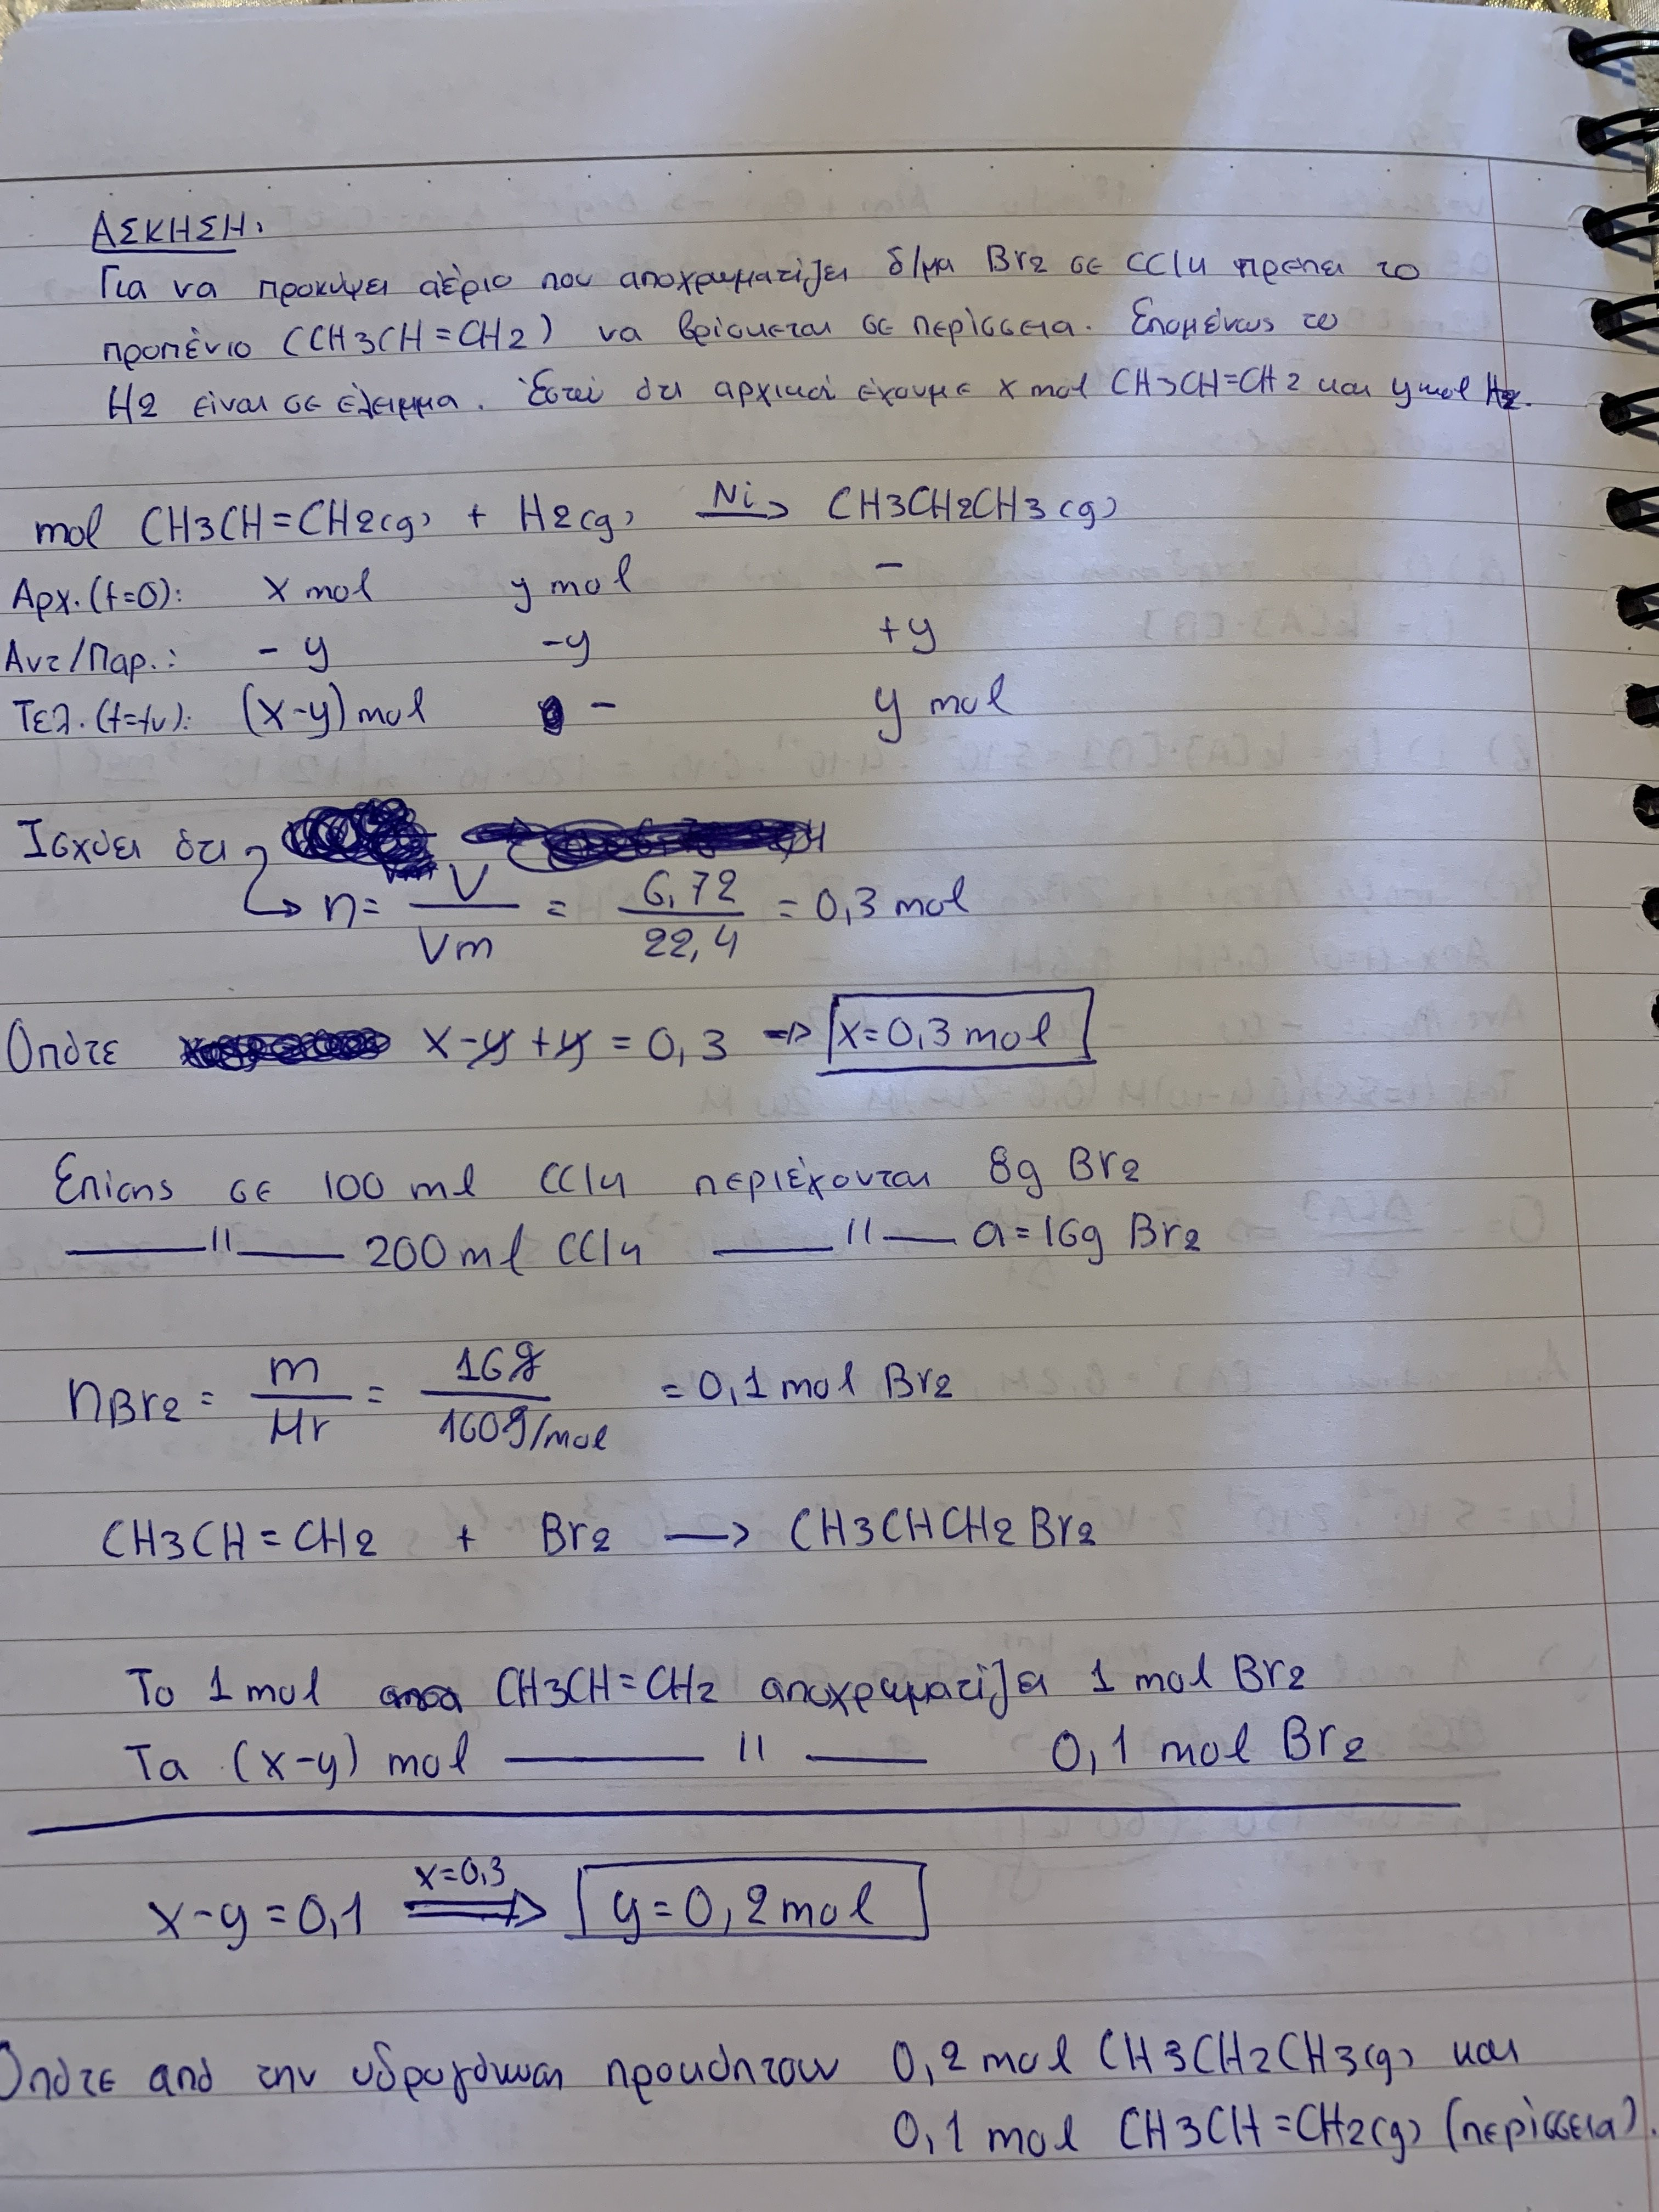 ΑΣΚΗΣΗ:
Για να προκύψει αέριο που αποχρωματίζει δ/μα Br2 σε CCl4 πρέπει το
προπένιο (CH3CH=CH2) να βρίσκεται σε περίσσεια. Επομένως το
H2 είναι σε έλειμμα. Έστω ότι αρχικά έχουμε x mol CH3CH=CH2 και y mol H2.
mol CH3CH=CH2(g) + H2(g) Ni→ CH3CH2CH3(g)
Αρχ.(t=0): x mol y mol -
Αντ/Παρ.: -y -y +y
Τελ.(t=tv): (x-y) mol - y mol
Ισχύει ότι
↳ n = V/Vm = 6,72/22,4 = 0,3 mol
Οπότε x-y+y = 0,3 ⇒ x=0,3 mol
Επίσης σε 100 ml CCl4 περιέχονται 8g Br2
—〃— 200 ml CCl4 —〃— a=16g Br2
nBr2 = m/Mr = 16g/160g/mol = 0,1 mol Br2
CH3CH=CH2 + Br2 → CH3CHCH2Br2
Το 1 mol CH3CH=CH2 αποχρωματίζει 1 mol Br2
Τα (x-y) mol —〃— 0,1 mol Br2
x-y=0,1 x=0,3⇒ y=0,2 mol
Οπότε από την υδρογόνωση προκύπτουν 0,2 mol CH3CH2CH3(g) και
0,1 mol CH3CH=CH2(g) (περίσσεια).